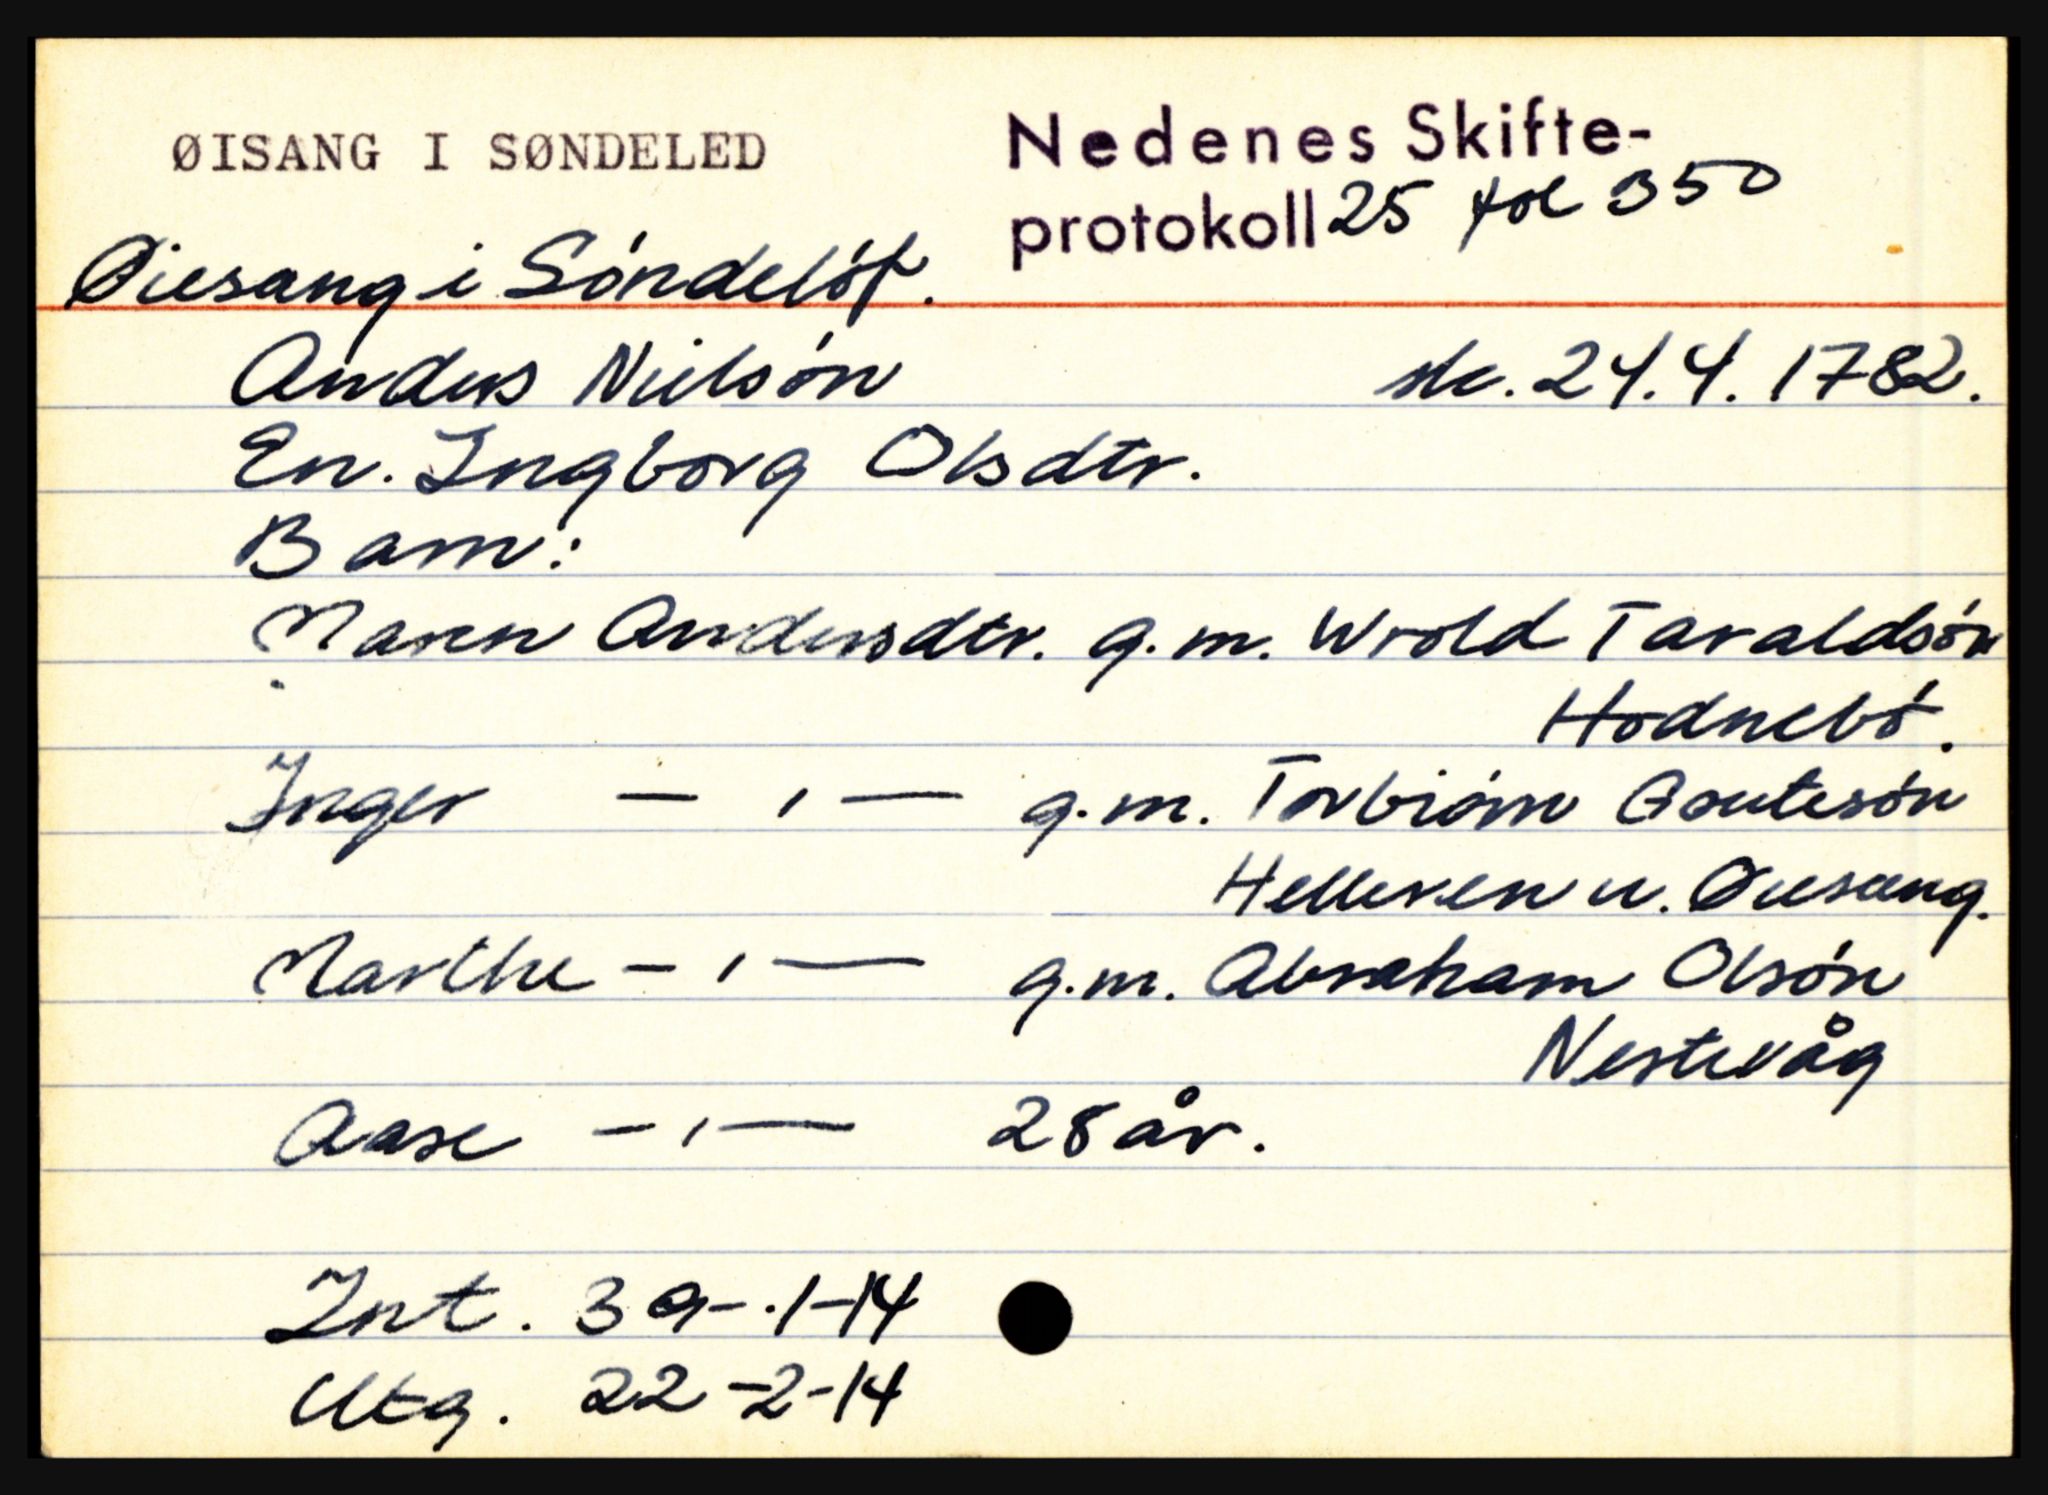 ØISANG I SØNDELED
Nedenes Skifte-
protokoll 25 fol 350
Øiesang i Sóndelóf.
Anders Nielsón
sk. 24.4.1782.
En. Ingborg Olsdtr.
Barn:
Maren Andersdtr. g.m. Wrold Taraldsón
Hodnebó.
Inger — ı — g.m. Torbiórn Gautesón
Helleren u. Øiesang.
Marthe — ı — g.m. Abraham Olsón
Nestevåg
Aase — ı — 28 år.
Int. 39-1-14
Utg. 22-2-14